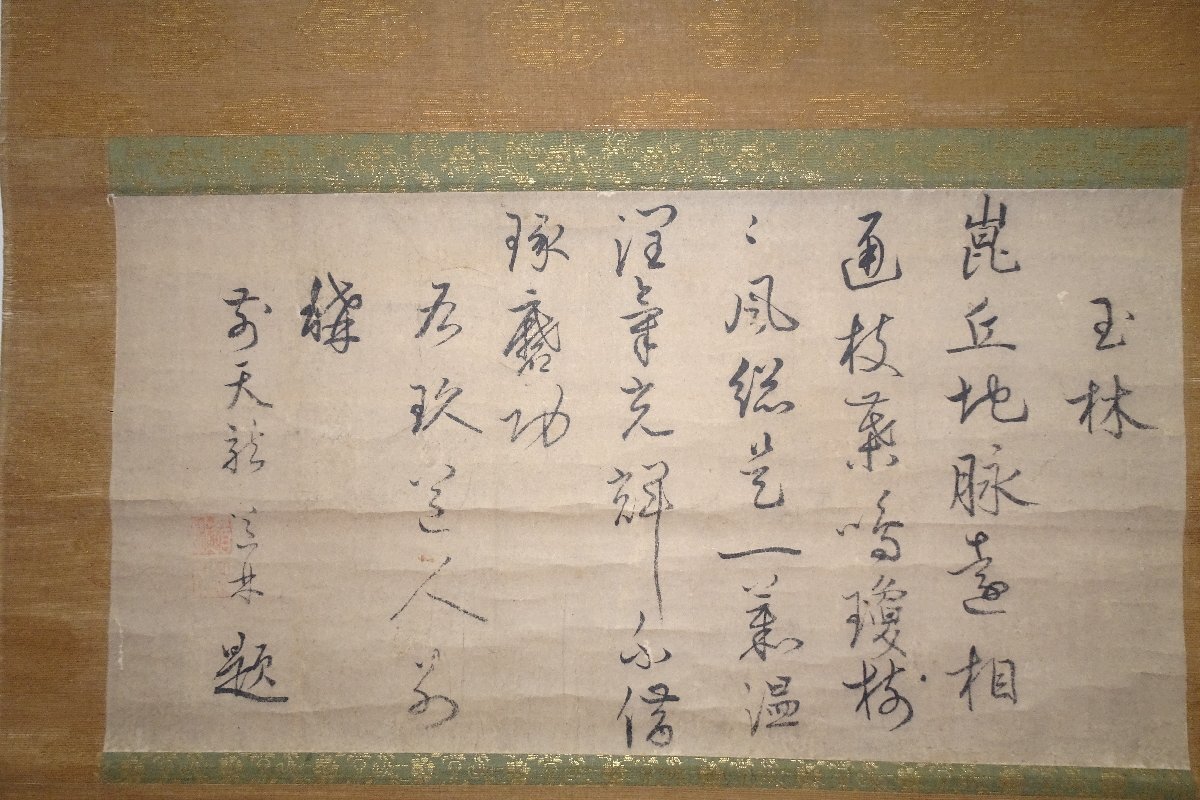 玉林
崑丘地脉遠相
通枝葉鳴瓊樹
〻風総是一叢温
潤氣光輝不借
琢磨功
右玖道人別
稱
前天龍林題